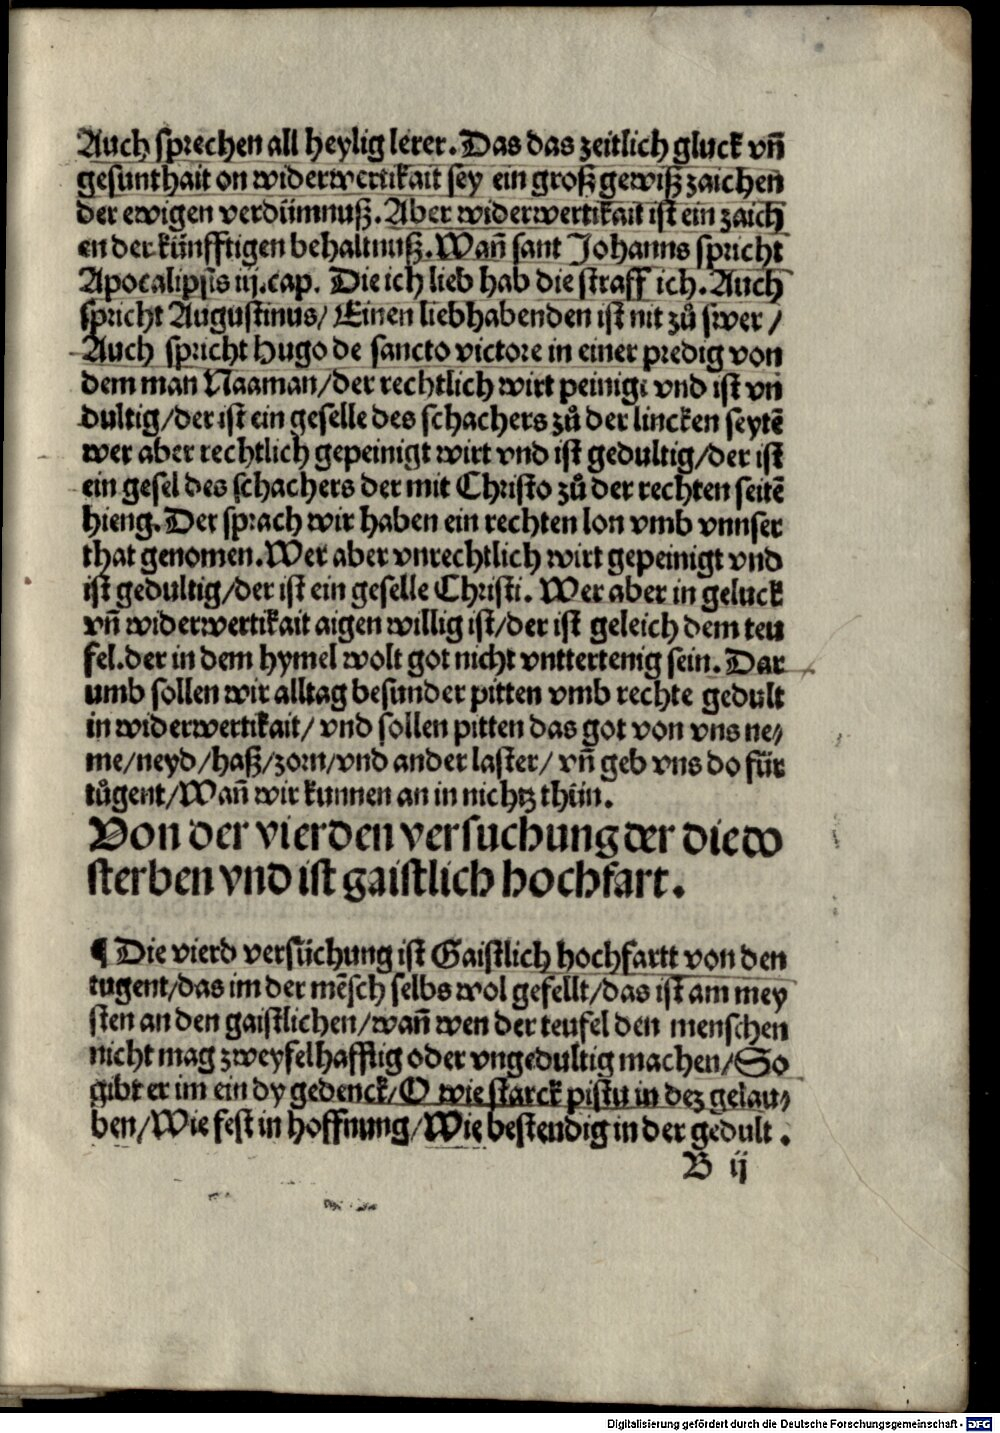 Auch sprechen all heylig lerer. Das das zeitlich gluck vñ
gesunthait on widerwertikait sey ein groß gewiß zaichen
der ewigen verdümnuß. Aber widerwertikait ist ein zaich
en der künfftigen behaltnuß. Wañ sant Johanns spricht
Apocalipsis iij. cap. Die ich lieb hab die straff ich. Auch
spricht Augustinus/ Einen liebhabenden ist nit zů swer /
Auch spricht Hugo de sancto victore in einer predig von
dem man Naaman/der rechtlich wirt peinigt vnd ist vn
dultig/der ist ein geselle des schachers zů der lincken seytē
wer aber rechtlich gepeinigt wirt vnd ist gedultig/der ist
ein gesel des schachers der mit Christo zů der rechten seitē
hieng. Der sprach wir haben ein rechten lon vmb vnnser
that genomen. Wer aber vnrechtlich wirt gepeinigt vnd
ist gedultig/der ist ein geselle Christi. Wer aber in geluck
vñ widerwertikait aigen willig ist/der ist geleich dem teu
fel. der in dem hymel wolt got nicht vnttertenig sein. Dar
umb sollen wir alltag besunder pitten vmb rechte gedult
in widerwertikait/ vnd sollen pitten das got von vns ne/
me/neyd/haß/zorn/vnd ander laster/ vñ geb vns do für
tůgent/Wañ wir kunnen an in nichtz thün.
Von der vierden versuchung der die do
sterben vnd ist gaistlich hochfart.
¶ Die vierd versüchung ist Gaistlich hochfartt von den
tugent/das im der mēsch selbs wol gefellt/das ist am mey
sten an den gaistlichen/wañ wen der teufel den menschen
nicht mag zweyfelhafftig oder vngedultig machen/So
gibt er im ein dy gedenck/O wie starck pistu in dez gelau/
ben/Wie fest in hoffnung/Wie bestendig in der gedult .
B ij
Digitalisierung gefördert durch die Deutsche Forschungsgemeinschaft - DFG